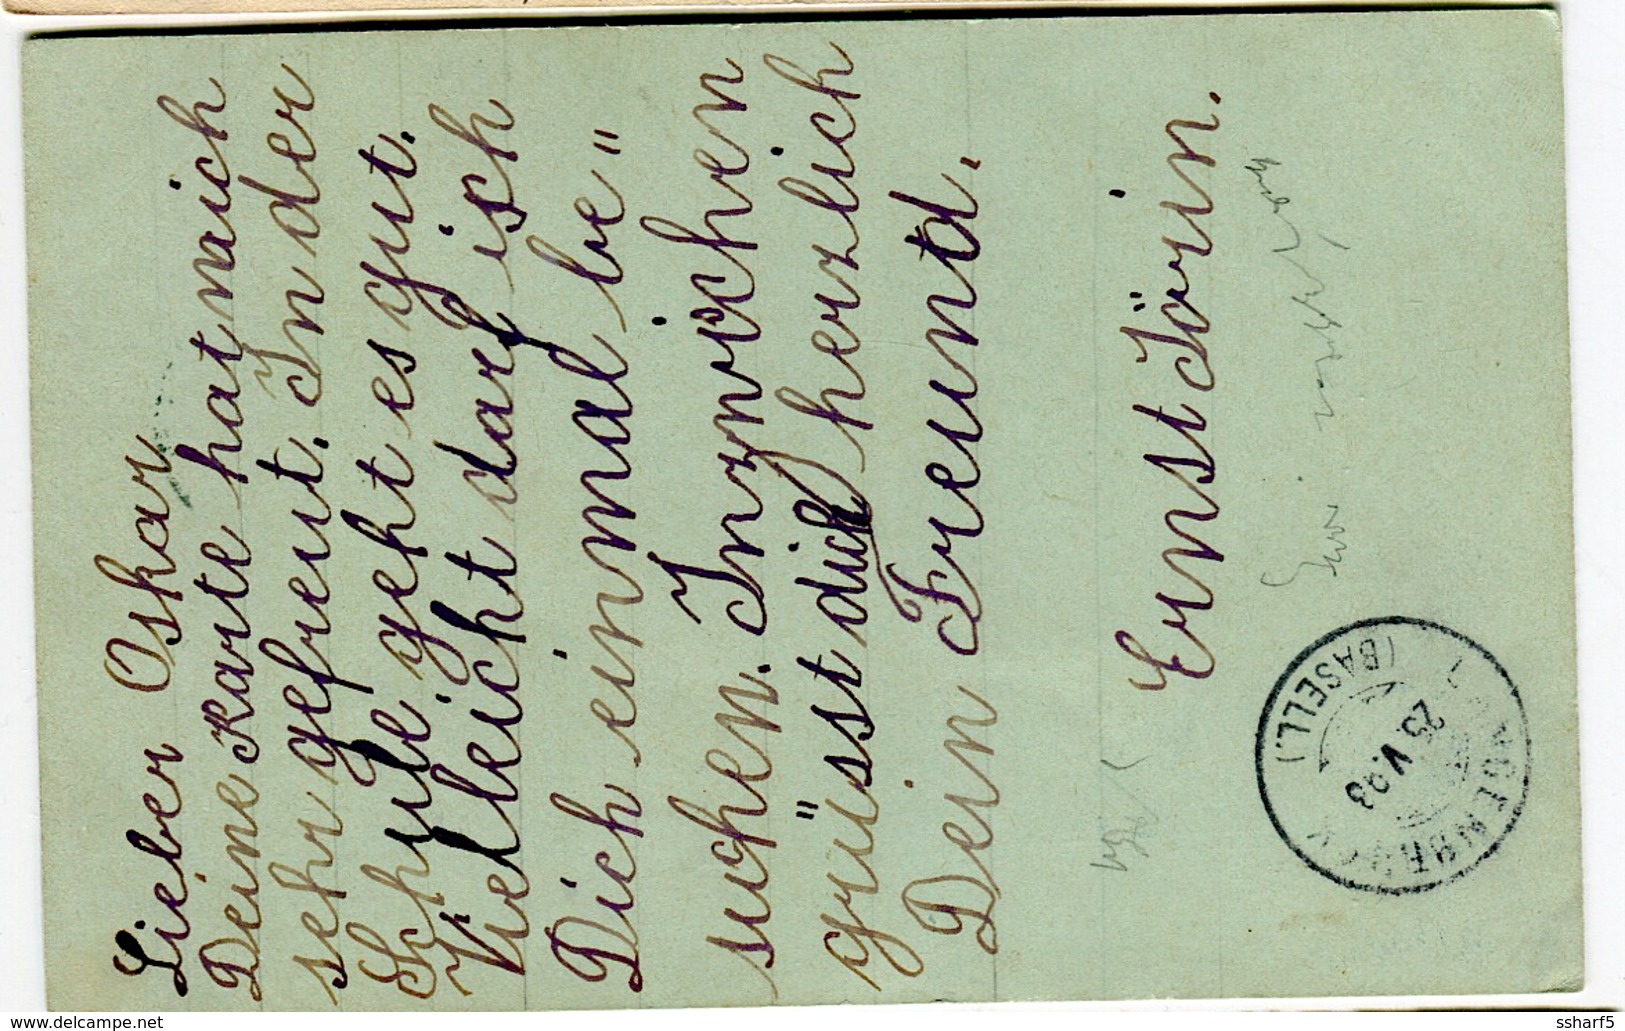 Lieber Oskar
Deine Karte hat mich
sehr gefreut. In der
Schule geht es gut.
Vielleicht darf ich
Dich einmal be"
suchen. Inzwischen
grüsst dich herzlich
Dein Freund.
Ernst Jörin.
LANGENBRUCK
25.V.03
(BASELL.)
www.delcampe.net
ssharf5